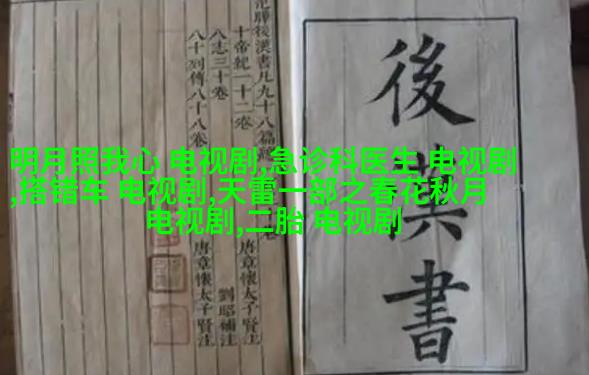 明月照我心 电视剧,急诊科医生 电视剧
,搭错车 电视剧,天雷一部之春花秋月
电视剧,二胎 电视剧
後漢書
曄後漢書凡九十八篇
十帝紀一十二卷 唐章懷太子賢注
八志三十卷 劉昭補注
八十列傳八十八卷 唐章懷太子賢注